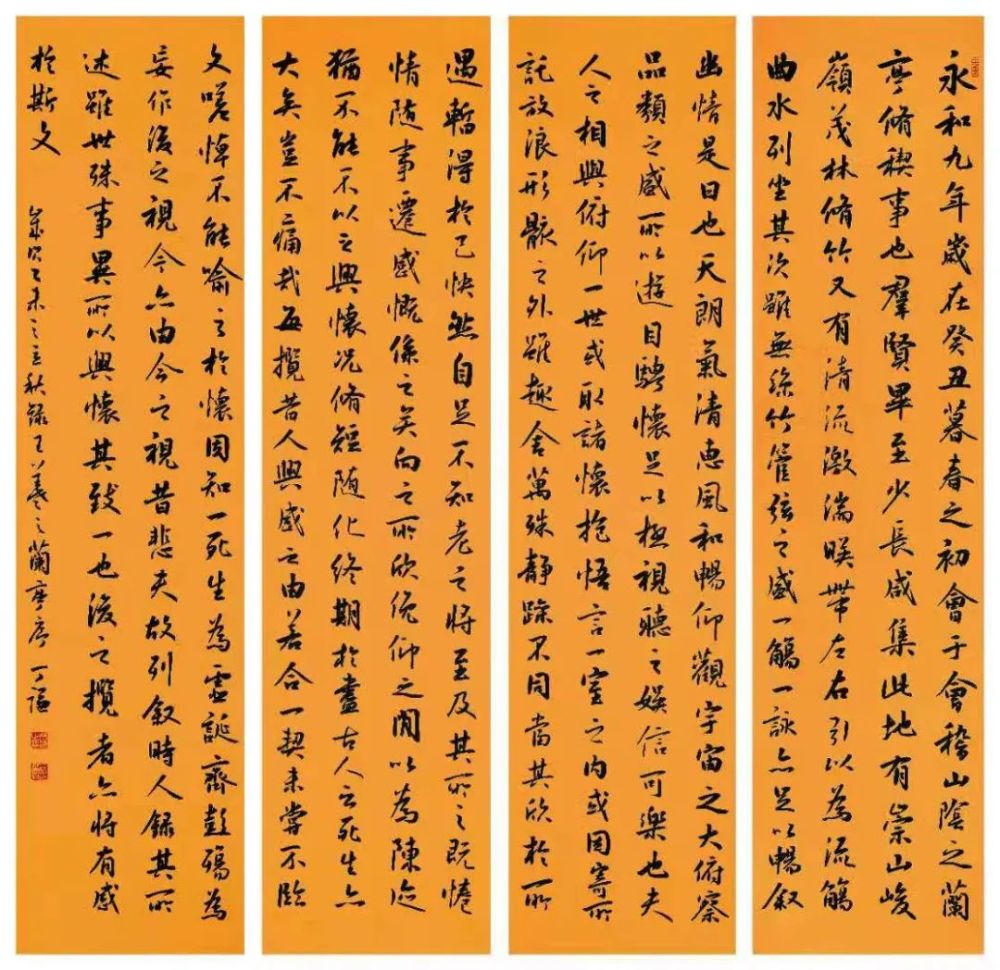 永和九年歲在癸丑暮春之初會于會稽山陰之蘭
亭脩稧事也羣賢畢至少長咸集此地有崇山峻
嶺茂林脩竹又有清流激湍暎帶左右引以為流觴
曲水列坐其次雖無絲竹管弦之盛一觴一詠亦足以暢叙
幽情是日也天朗氣清惠風和暢仰觀宇宙之大俯察
品類之盛所以遊目騁懷足以極視聽之娛信可樂也夫
人之相與俯仰一世或取諸懷抱悟言一室之內或因寄所
託放浪形骸之外雖趣舍萬殊靜躁不同當其欣於所
遇暫得於己怏然自足不知老之將至及其所之既惓
情随事遷感慨係之矣向之所欣俛仰之閒以為陳迹
猶不能不以之興懷況脩短随化終期於盡古人云死生亦
大矣豈不痛哉每攬昔人興感之由若合一契未嘗不臨
文嗟悼不能喻之於懷固知一死生為虛誕齊彭殤為
妄作後之視今亦由今之視昔悲夫故列叙時人錄其所
述雖世殊事異所以興懷其致一也後之攬者亦將有感
於斯文 乙未之立秋錄王羲之蘭亭序 丁